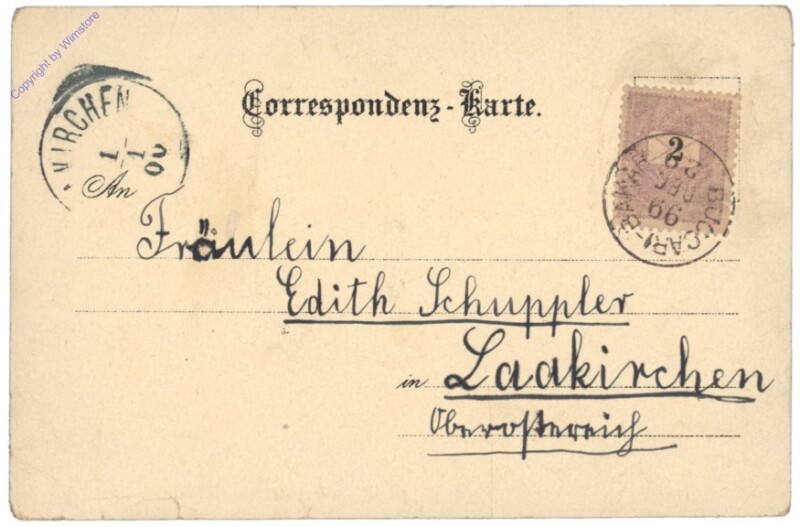 Copyright by Wimstore
Correspondenz-Karte.
KIRCHEN
1/1
00
2
BUCCARI-BAKAR
DEC
99
An
Fräulein
Edith Schuppler
in Laakirchen
Oberösterreich